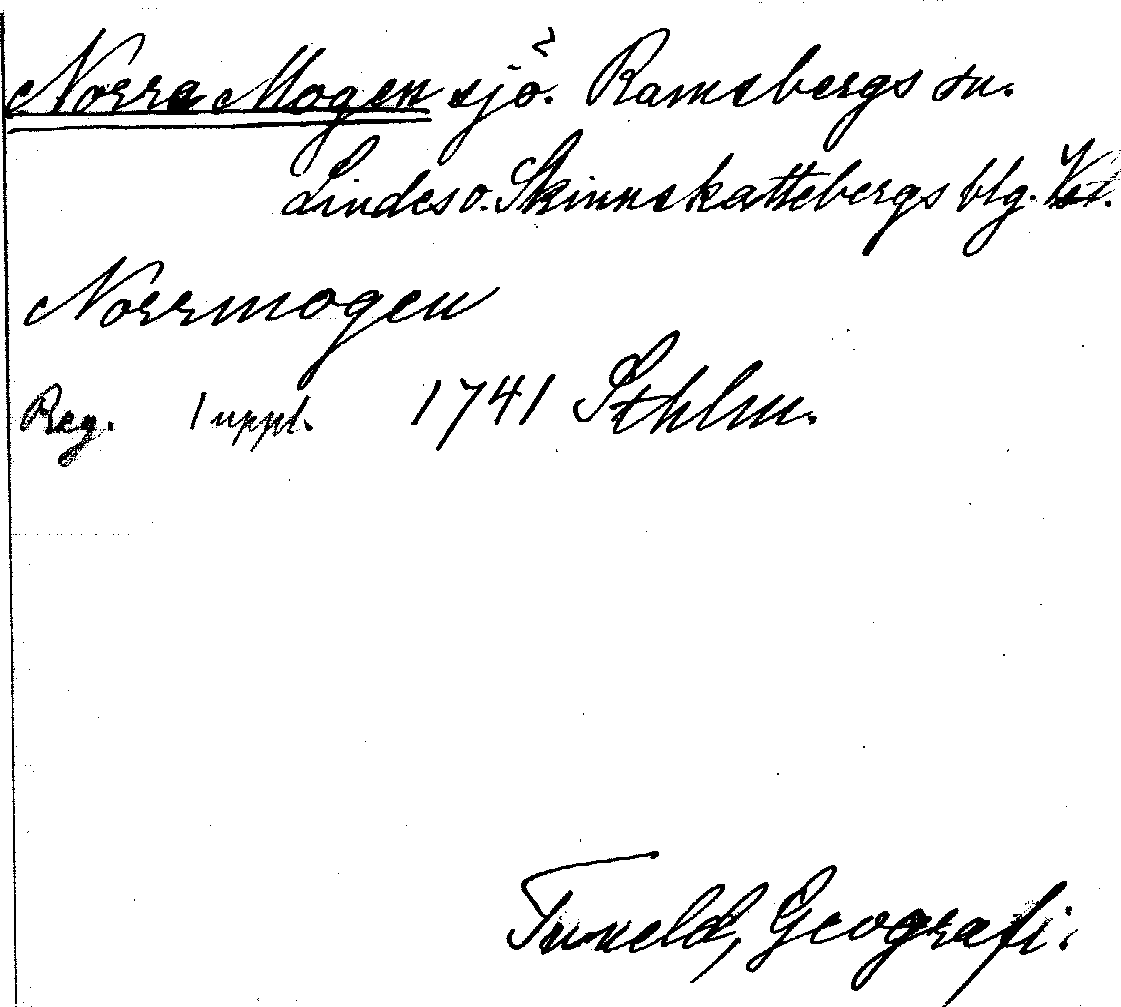 Norra Mogen sjö. Ramsbergs sn.
Lindes o. Skinnskattebergs blg. Vstm.
Norrmogen
Reg. 1 uppl. 1741 Sthlm.
Tuneld, Geografi.